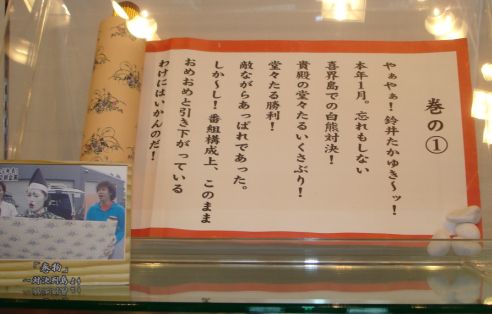 巻の①
やぁやぁ！鈴井たかゆき～ッ！
本年１月。忘れもしない
喜界島での白熊対決！
貴殿の堂々たるいくさぶり！
堂々たる勝利！
敵ながらあっぱれであった。
しか～し！番組構成上、このまま
おめおめと引き下がっている
わけにはいかんのだ！
『巻物』
～対決列島より